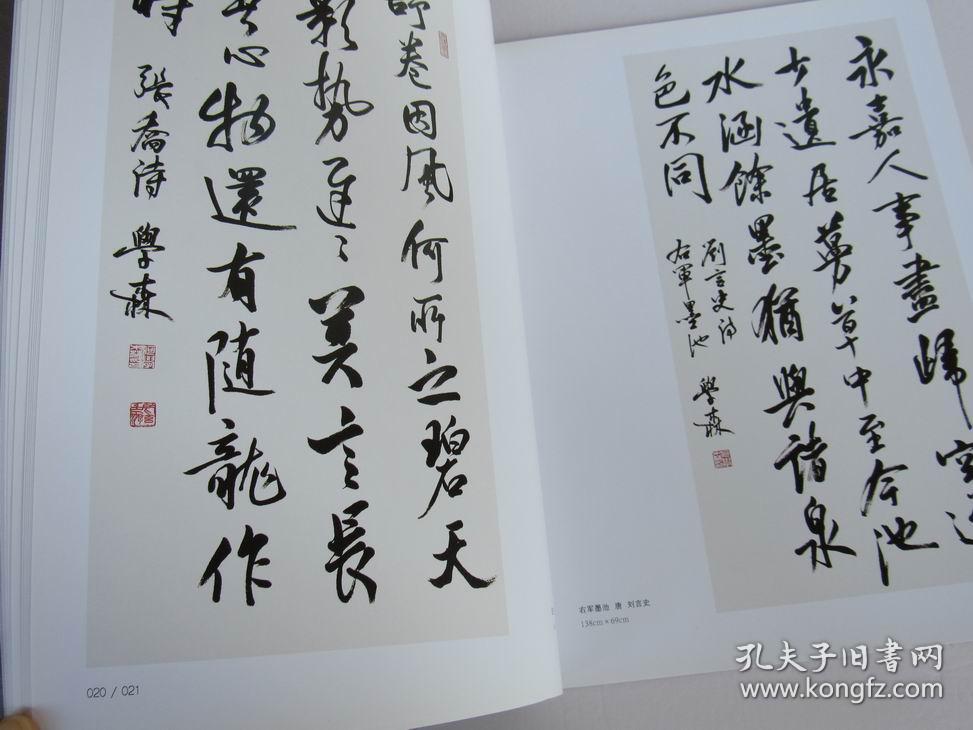 卷因風何所之碧天
影勢遲〻莫言長
心物還有隨龍作
時
張喬詩 學森
020 / 021
永嘉人事盡歸空逸
少遺居蔓草中至今池
水涵餘墨猶與諸泉
色不同
劉言史詩
右軍墨池
學森
右军墨池 唐 刘言史
138cm×69cm
孔夫子旧书网
www.kongfz.com